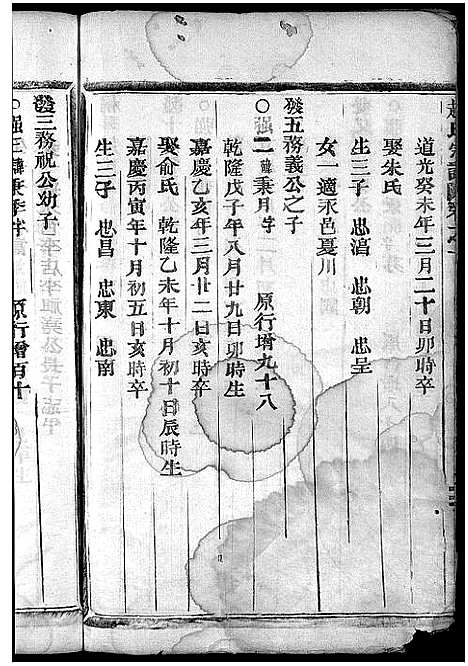 道光癸未年三月二十日卯時卒
娶朱氏
生三子 忠濤 忠朝 忠呈
女一適永邑夏川
發五務義公之子
○强二 諱秉月字 原行增九十八
乾隆戊子年八月廿九日卯時生
嘉慶乙亥年三月廿二日亥時卒
娶俞氏 乾隆乙未年十月初十日辰時生
嘉慶丙寅年十月初五日亥時卒
生三子 忠昌 忠東 忠南
發三務祝公幼子
○强三 諱秉李字 原行增百十